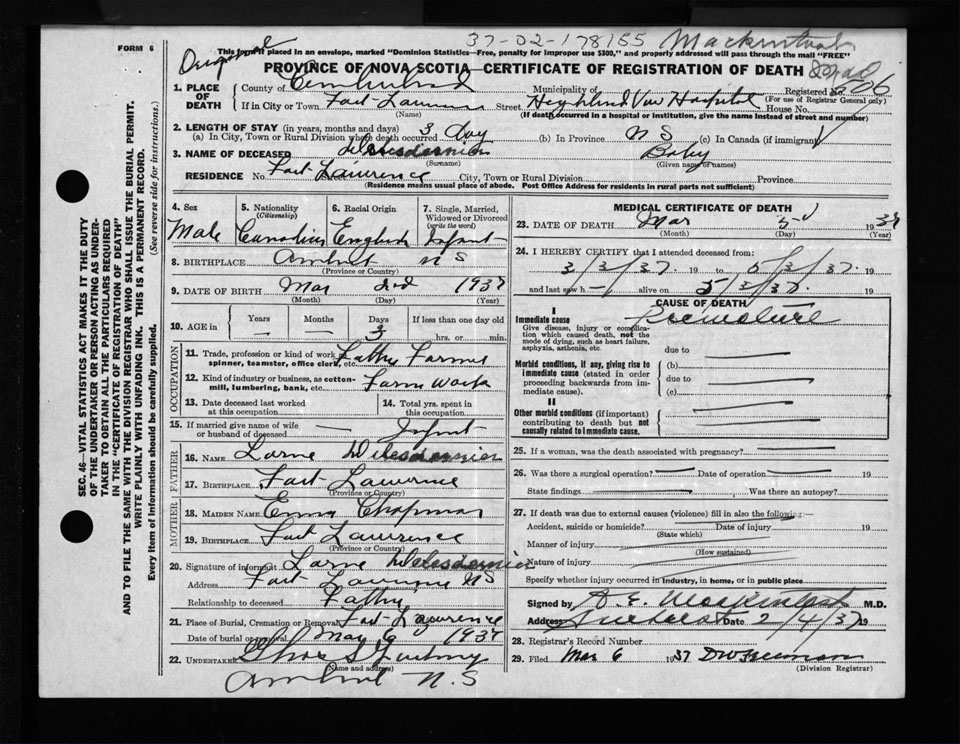 37-02-178155 Mackintosh
FORM 6
This form if placed in an envelope, marked "Dominion Statistics—Free, penalty for improper use $300," and properly addressed will pass through the mail "FREE"
PROVINCE OF NOVA SCOTIA—CERTIFICATE OF REGISTRATION OF DEATH
1. PLACE OF DEATH County of Cumberland Municipality of Registered No. 206
(For use of Registrar General only)
If in City or Town Fort Lawrence Street Highland View Hospital House No.
(Name) (If death occurred in a hospital or institution, give the name instead of street and number)
2. LENGTH OF STAY (in years, months and days)
(a) In City, Town or Rural Division where death occurred 3 day (b) In Province N S (c) In Canada (if immigrant)
3. NAME OF DECEASED deLesdernier Baby
(Surname) (Given name or names)
RESIDENCE No. Fort Lawrence City, Town or Rural Division Province
(Residence means usual place of abode. Post Office Address for residents in rural parts not sufficient)
4. Sex Male
5. Nationality (Citizenship) Canadian
6. Racial Origin English
7. Single, Married, Widowed or Divorced (write the word) Infant
8. BIRTHPLACE Amherst N S
(Province or Country)
9. DATE OF BIRTH Mar 1937
(Month) (Day) (Year)
10. AGE in Years — Months — Days 3 If less than one day old hrs. or min.
OCCUPATION
11. Trade, profession or kind of work as spinner, teamster, office clerk, etc. Father Farmer
12. Kind of industry or business, as cotton-mill, lumbering, bank, etc. Farm Work
13. Date deceased last worked at this occupation
14. Total yrs. spent in this occupation
15. If married give name of wife or husband of deceased — Infant
FATHER
16. NAME Lorne deLesdernier
17. BIRTHPLACE Fort Lawrence
(Province or Country)
MOTHER
18. MAIDEN NAME Emma Chapman
19. BIRTHPLACE Fort Lawrence
(Province or Country)
20. Signature of informant Lorne deLesdernier
Address Fort Lawrence NS
Relationship to deceased Father
21. Place of Burial, Cremation or Removal Fort Lawrence
Date of burial or removal Mar 6 1937
22. UNDERTAKER
(Name and address)
Amherst N.S
MEDICAL CERTIFICATE OF DEATH
23. DATE OF DEATH Mar 5 1937
(Month) (Day) (Year)
24. I HEREBY CERTIFY that I attended deceased from:
3/3/37. 19 to 5/3/37. 19
and last saw h— alive on 5/3/37. 19
CAUSE OF DEATH
I
Immediate cause Premature
Give disease, injury or complication which caused death, not the mode of dying, such as heart failure, asphyxia, asthenia, etc.
due to
Morbid conditions, if any, giving rise to immediate cause (stated in order proceeding backwards from immediate cause).
(b)
due to
(c)
II
Other morbid conditions (if important) contributing to death but not causally related to immediate cause.
25. If a woman, was the death associated with pregnancy?
26. Was there a surgical operation? Date of operation 19
State findings Was there an autopsy?
27. If death was due to external causes (violence) fill in also the following:—
Accident, suicide or homicide? Date of injury 19
(State which)
Manner of injury
(How sustained)
Nature of injury
Specify whether injury occurred in industry, in home, or in public place
Signed by A. E. Mackintosh M.D.
Address Amherst Date 2/4/37 19
28. Registrar's Record Number
29. Filed Mar 6 1937 DW Freeman
(Division Registrar)
SEC. 46—VITAL STATISTICS ACT MAKES IT THE DUTY
OF THE UNDERTAKER OR PERSON ACTING AS UNDER-
TAKER TO OBTAIN ALL THE PARTICULARS REQUIRED
IN THE "CERTIFICATE OF REGISTRATION OF DEATH"
AND TO FILE THE SAME WITH THE DIVISION REGISTRAR WHO SHALL ISSUE THE BURIAL PERMIT.
WRITE PLAINLY WITH UNFADING INK. THIS IS A PERMANENT RECORD.
Every item of information should be carefully supplied. (See reverse side for instructions.)